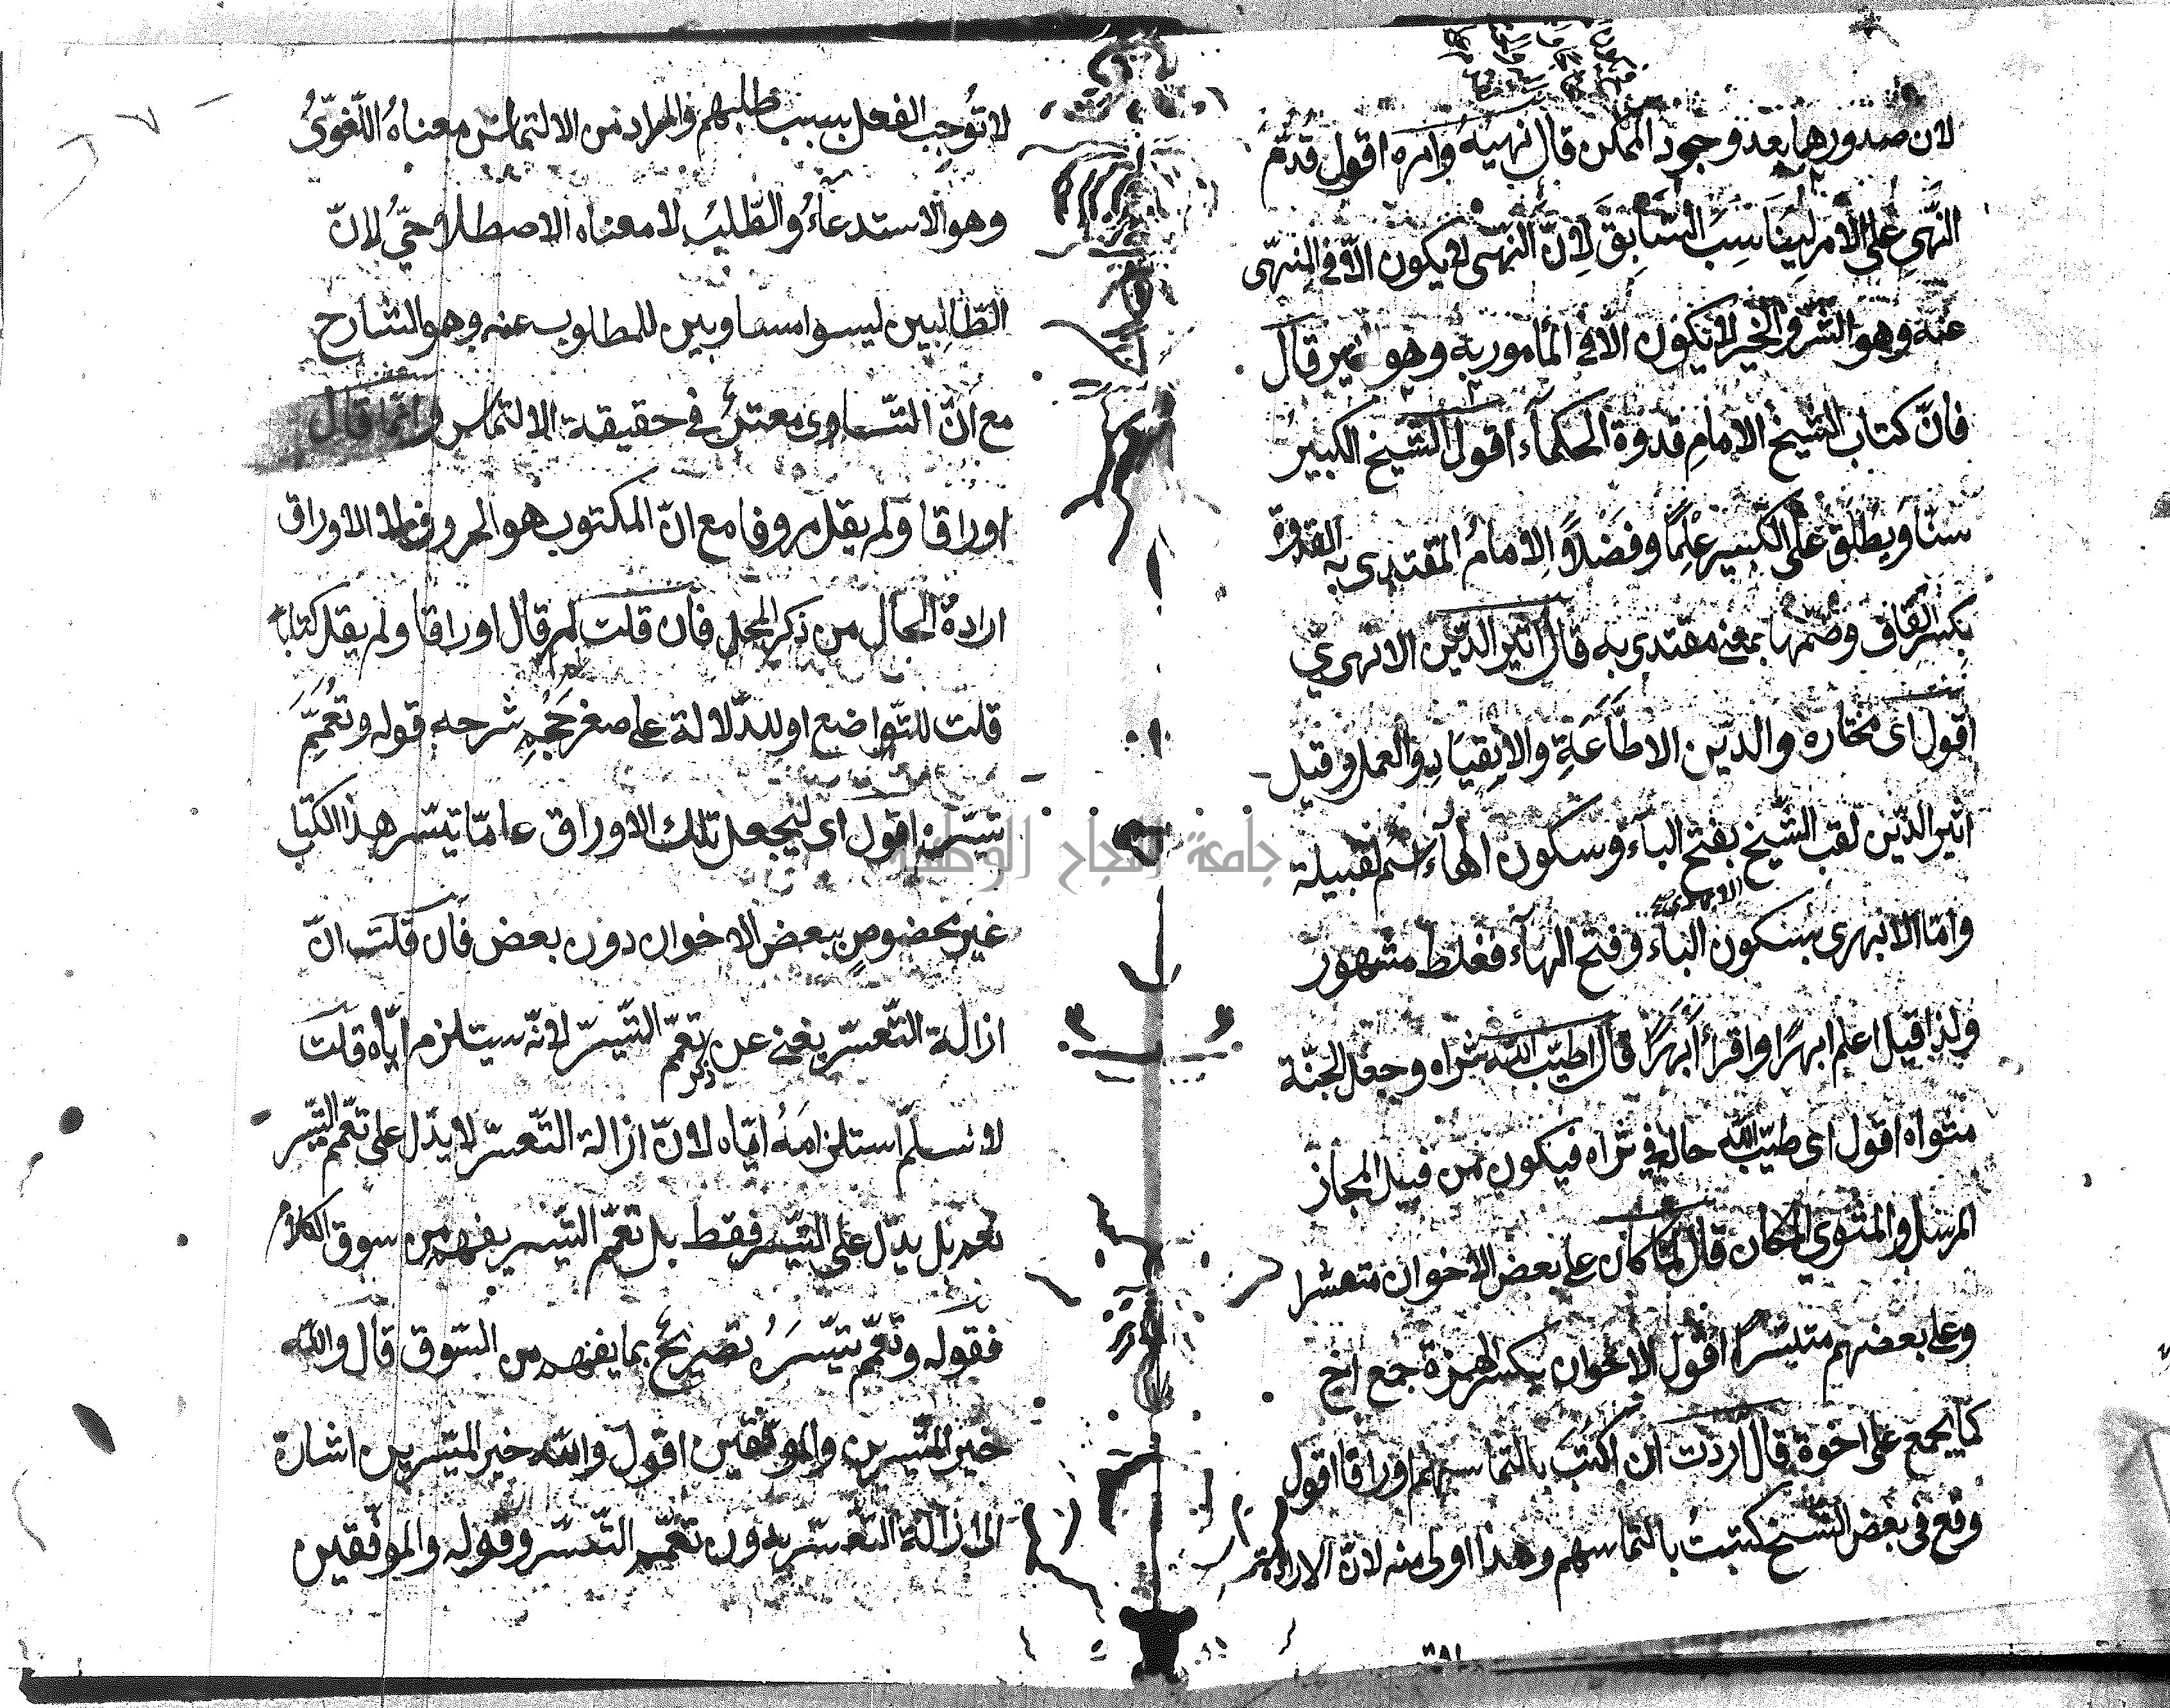 لان صدورها بعد وجود الممكن قال نهيه وامره اقول قدّم
النّهى على الامر ليناسب السّابق لانّ النّهى لا يكون الاّ فى المنهى
عنه وهو الشر والخير لا يكون الاّ فى المأمور به وهو خير قال
فانّ كتاب الشيخ الامام قدوة الحكمآء اقول الشيخ الكبير
سنّا ويطلق على الكبير علمًا وفضلاً والامامُ المقتدى به القدوة
بكسر القاف وضمّها بمعنى مقتدى به قال اثير الدّين الابهرىّ
اقول اى مختاره والدّين الاطاعة والانقياد والعمل وقيل
اثير الدّين لقب الشّيخ بفتح البآء وسكون الهآء اسم لقبيلة
الابهرى
وامّا الابهرى بسكون البآء وفتح الهآء فغلط مشهور
ولذا قيل اعلم ابهرًا واقرأ أبهرًا قال طيّب الله ثراه وجعل الجنّة
مثواه اقول اى طيّب الله حاله فى ثراه فيكون من قبيل المجاز
المرسل والمثوى المكان قال لمّا كان على بعض الاخوان متعسّرا
وعلى بعضهم متيسّرًا اقول الاخوان بكسر الهمزة جمع اخ
كما يجمع على اخوة قال اردت ان اكتب بالتماسهم اوراقا اقول
وقع فى بعض النّسخ كتبتُ بالتماسهم وهذا اولى منه لانّ الارادة
لا تُوجب الفعل بسبب طلبهم والمراد من الالتماس معناهُ اللّغوىُّ
وهو الاستدعآءُ والطّلبُ لا معناه الاصطلاحىُّ لانّ
الطّالبين ليسوا مساويين للمطلوب عنه وهو الشارح
مع انّ التّساوى معتبر فى حقيقة الالتماس وانّما قال
اوراقا ولم يقل حروفا مع انّ المكتوب هو الحروف لا الاوراق
ارادةُ الحال من ذكر المحل فان قلت لم قال اوراقا ولم يقل كتابا
قلت للتّواضع او للدّلالة على صغر حجمِ شرحه قوله وتُعمِّمَ
تيسّره اقول اى ليجعل تلك الاوراق عامّا تيسّر هذا الكتاب
غير مخصوصٍ ببعض الاخوان دون بعض فان قلت انّ
ازالة التّعسّر يغنى عن ذكر تعمّم التّيسّر لانّه سيتلزم ايّاه قلت
لا نسلّم استلزامهُ ايّاه لانّ ازالة التّعسّر لا يدّل على تعمّم التيسّر
نعم بل يدّل على التّيسّر فقط بل تعمّم التّيسّر يفهم من سوق الكلام
فقوله وتعمّم تيسّرَهُ تصريحٌ بما يفهم من السّوق قال والله
خير الميسّرين والموفّقين اقول والله خير الميّسرين اشارة
الى ازالة التّعسّر بدون تعمّم التّعسّر وقوله والموفّقين
جامعة النجاح الوطنية